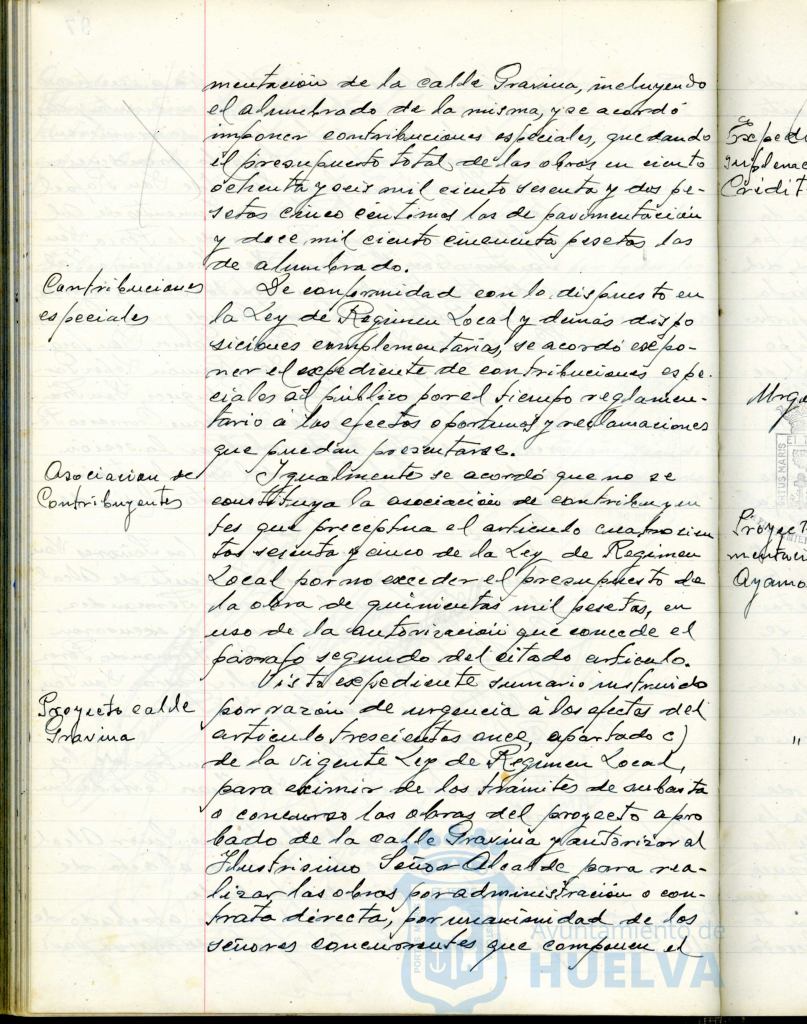 mentación de la calle Gravina, incluyendo
el alumbrado de la misma, y se acordó
imponer contribuciones especiales, quedando
el presupuesto total de las obras en ciento
ochenta y seis mil ciento sesenta y dos pe-
setas cinco centimos las de pavimentación
y doce mil ciento cincuenta pesetas las
de alumbrado.
Contribuciones
especiales
De conformidad con lo dispuesto en
la Ley de Regimen Local y demás dispo
siciones complementarias, se acordó expo-
ner el expediente de contribuciones espe-
ciales al público por el tiempo reglamen-
tario á los efectos oportunos y reclamaciones
que puedan presentarse.
Asociacion de
Contribuyentes
Igualmente se acordó que no se
constituya la asociación de contribuyen
tes que preceptua el articulo cuatrocien
tos sesenta y cinco de la Ley de Regimen
Local por no exceder el presupuesto de
la obra de quinientas mil pesetas, en
uso de la autorización que concede el
párrafo segundo del citado articulo.
Proyecto calle
Gravina
Visto expediente sumario instruido
por razón de urgencia á los efectos del
articulo trescientos once, apartado c)
de la vigente Ley de Regimen Local,
para eximir de los trámites de subasta
o concurso las obras del proyecto apro
bado de la calle Gravina y autorizar al
Ilustrisimo Señor Alcalde para rea-
lizar las obras por administración o con-
trata directa, por unanimidad de los
señores concurrentes que componen el
Ayuntamiento de
HUELVA
Expedi
Crédit
Urge
Proyect
mentaci
Ayamo
"